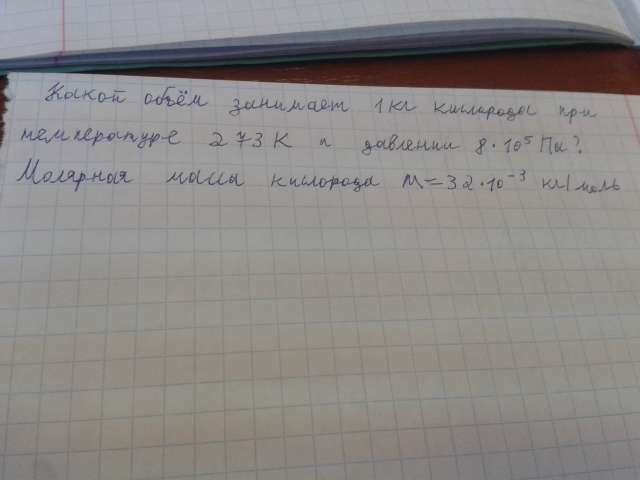 Какой объём занимает 1 кг кислорода при
температуре 273 К и давлении 8·10⁵ Па?
Молярная масса кислорода M=32·10⁻³ кг/моль